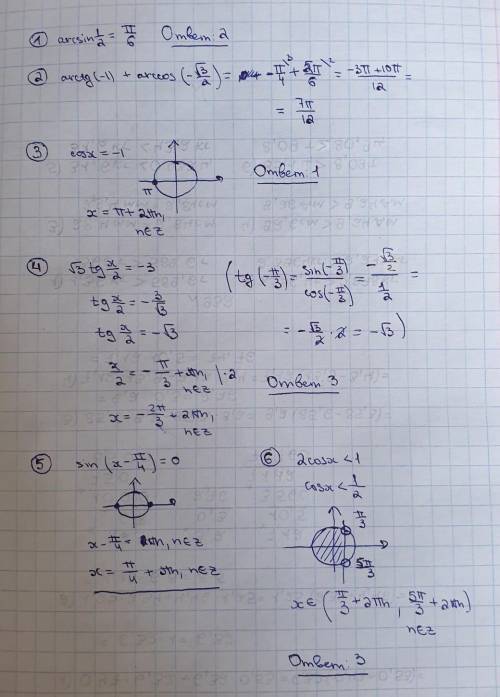 ① arcsin 1/2 = π/6 Ответ: 2
② arctg(-1) + arccos(-√3/2) = -π/4\3 + 5π/6\2 = (-3π+10π)/12 =
= 7π/12
③ cosx = -1
π
Ответ 1
x = π + 2πn,
n∈Z
④ √3 tg x/2 = -3
tg x/2 = -3/√3
tg x/2 = -√3
x/2 = -π/3 + πn, | ·2
n∈Z
x = -2π/3 + 2πn,
n∈Z
(tg(-π/3) = sin(-π/3)/cos(-π/3) = (-√3/2)/(1/2) =
= -√3/2 · 2 = -√3)
Ответ 3
⑤ sin(x - π/4) = 0
x - π/4 = πn, n∈Z
x = π/4 + πn, n∈Z
⑥ 2cosx < 1
cosx < 1/2
π/3
5π/3
x∈(π/3 + 2πn, 5π/3 + 2πn)
n∈Z
Ответ: 3